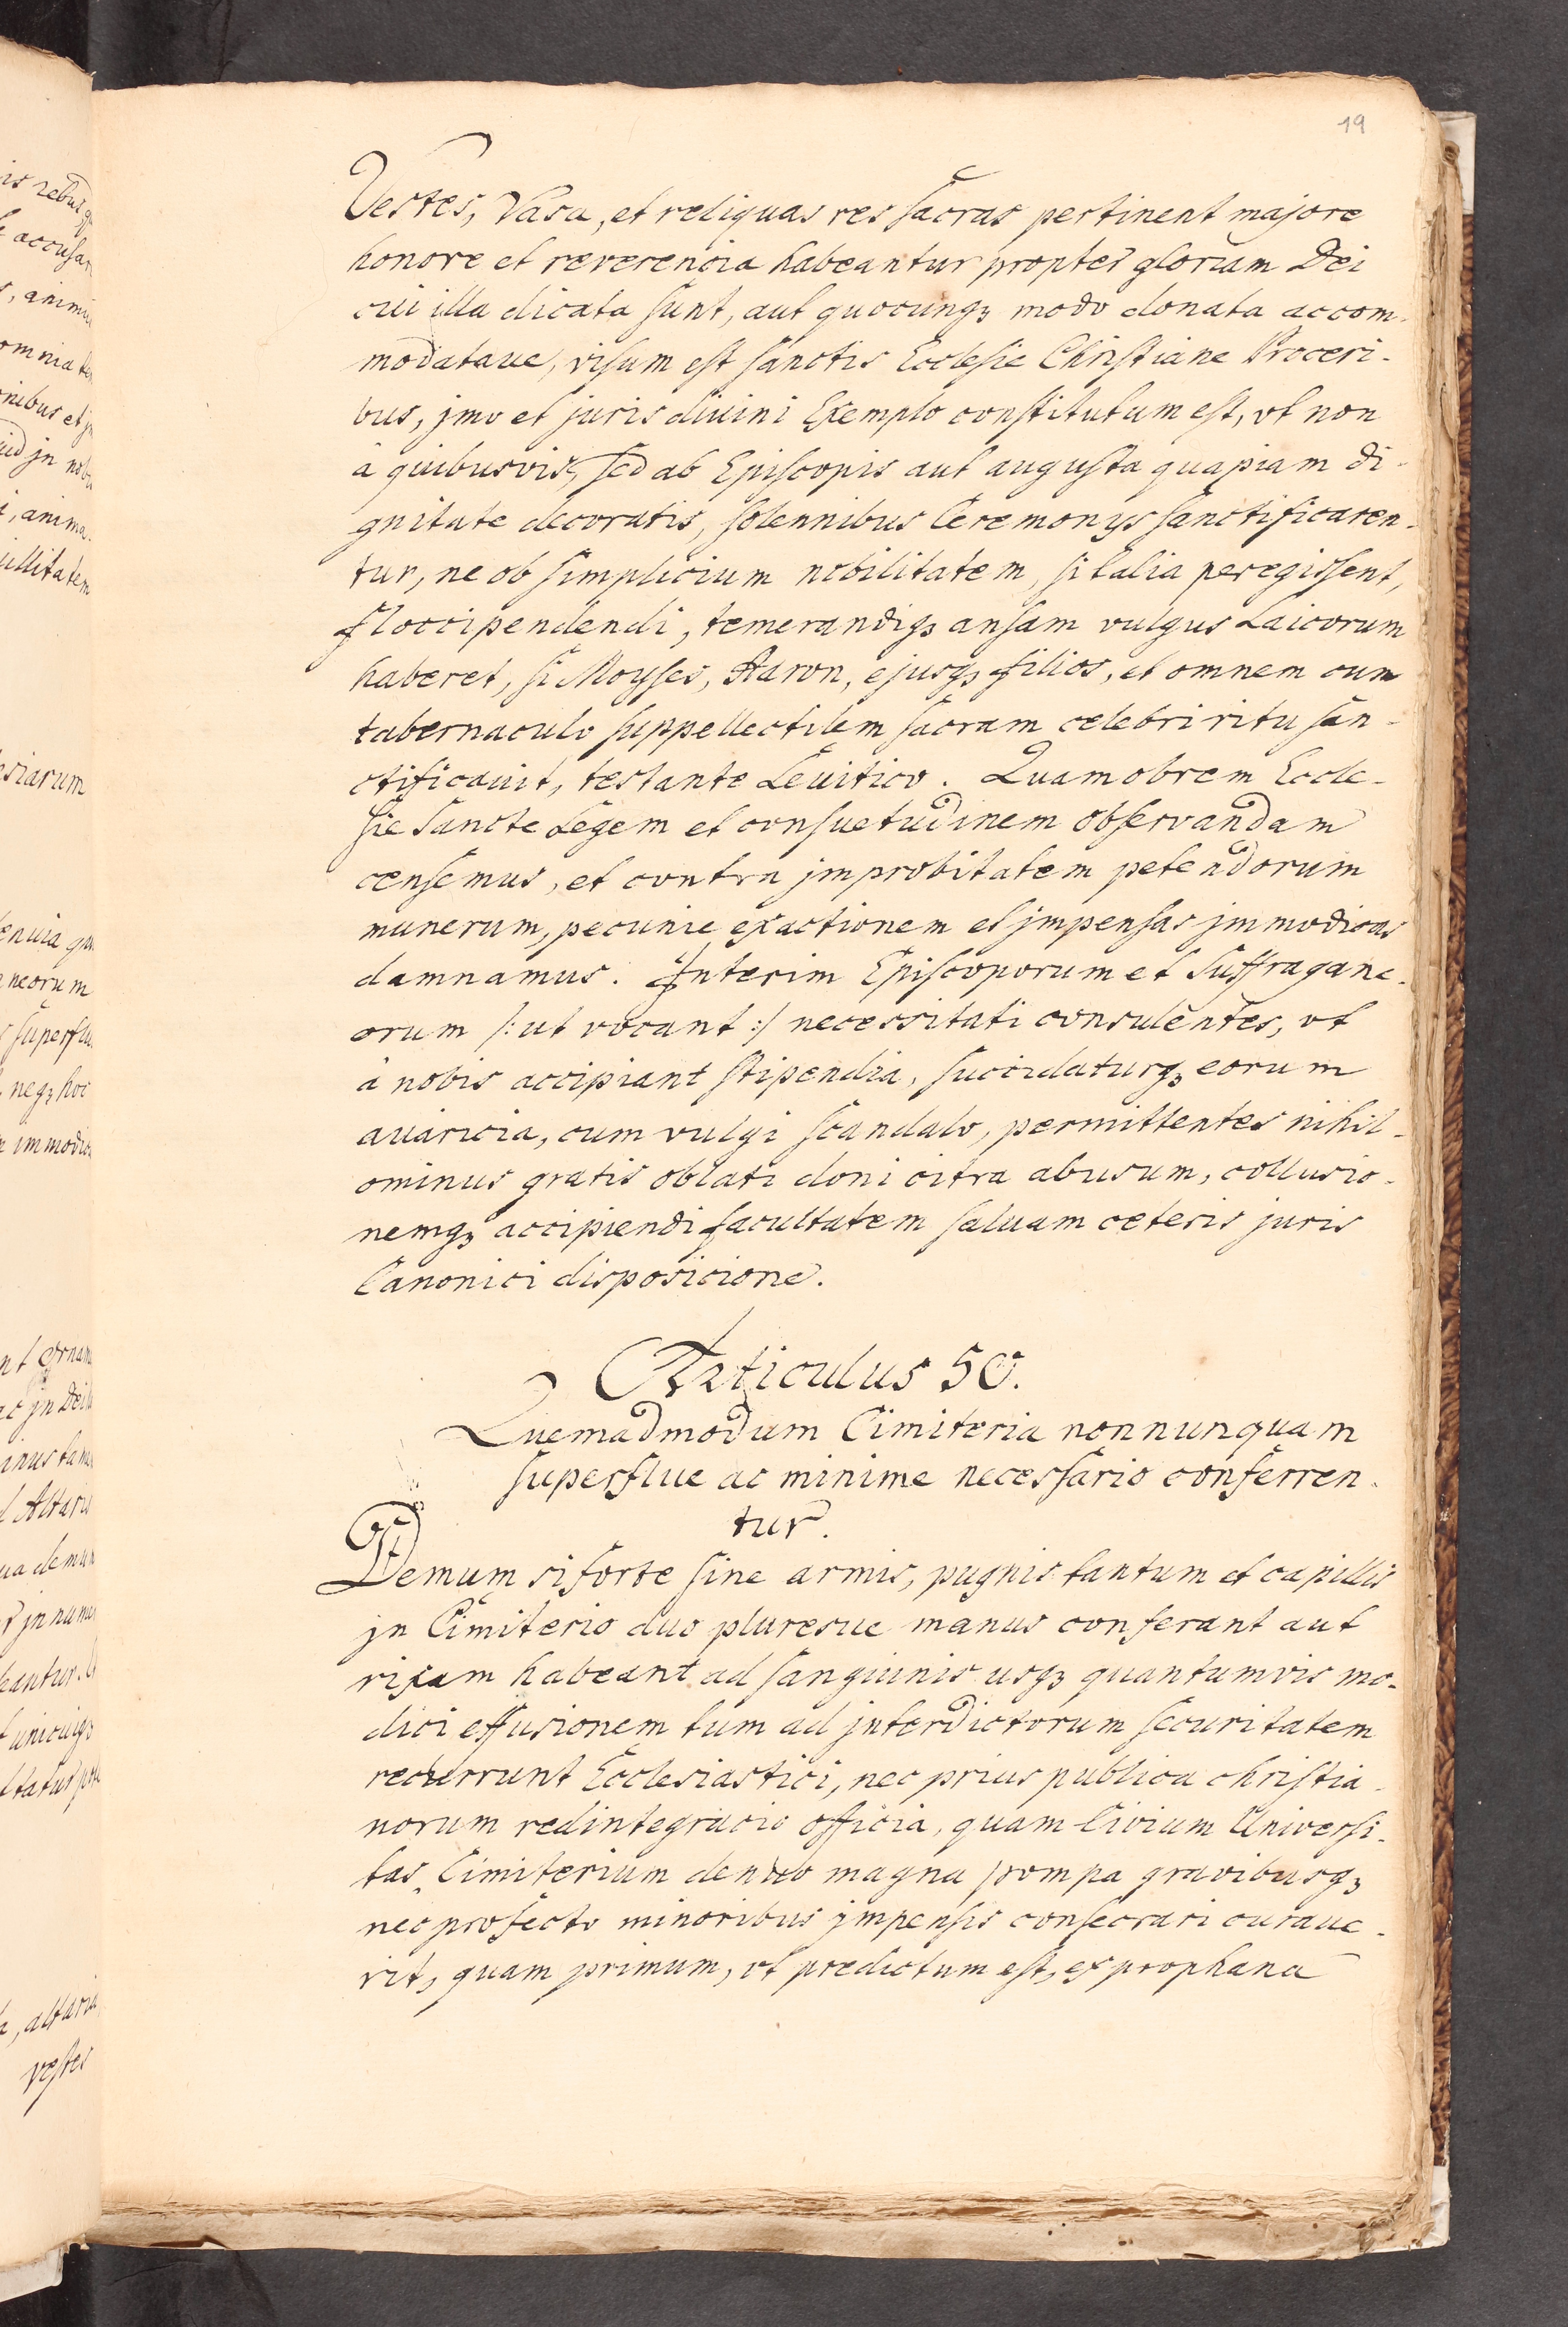 19
Vestes, Vasa, et reliquas res sacras pertinent majore
honore et reverencia habeantur propter gloriam Dei
cui illa dicata sunt, aut quocunqꝫ modo donata accom-
modataue, visum est sanctis Ecclesie Christiane Proceri-
bus, jmo et juris diuini Exemplo constitutum est, vt non
à quibusvis, sed ab Episcopis aut augusta quapiam di-
gnitate decoratis, solennibus Ceremonys sanctificaren-
tur, ne ob simplicium nobilitatem, si talia peregissent,
floccipendendi, temerandiqꝫ ansam vulgus Laicorum
haberet, si Moyses, Aaron, ejusqꝫ filios, et omnem cum
tabernaculo suppellectilem sacram celebri ritu san-
ctificauit, testante Leuitico. Quamobrem Eccle-
sie Sancte Legem et consuetudinem observandam
censemus, et contra jmprobitatem petendorum
munerum, pecunie exactionem et jmpensas jmmodicas
damnamus. Interim Episcoporum et Suffragane-
orum /: ut vocant :/ necessitati consulentes, vt
à nobis accipiant stipendia, succidaturqꝫ eorum
auaricia, cum vulgi scandalo, permittentes nihil-
ominus gratis oblati doni citra abusum, collusio-
nemqꝫ accipiendi facultatem saluam ceteris juris
Canonici disposicione.
Articulus 50.
Quemadmodum Cimiteria nonnunquam
superflue ac minime necessario conferren-
tur.
Demum si forte sine armis, pugnis tantum et capillis
jn Cimiterio duo pluresue manus conferant aut
rixam habeant ad sanguinis usqꝫ quantumvis mo-
dici effusionem tum ad jnterdictorum securitatem
recurrunt Ecclesiastici, nec prius publica christia-
norum redintegracio officia, quam Civium Universi-
tas Cimiterium denuo magna pompa gravibusqꝫ
nec profecto minoribus jmpensis consecrari curaue-
rit, quam primum, vt predictum est, ex prophana